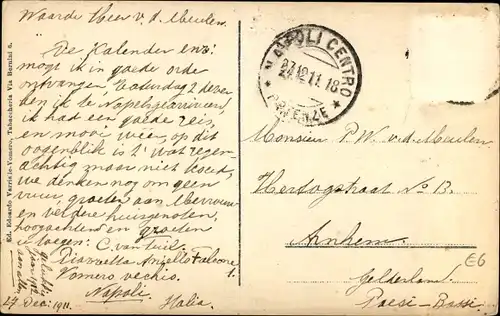 Waarde Heer v. d. Meulen
De Kalender enz:
mogt ik in goede orde
ontvangen, Zaturdag 2 Dezem
ben ik te Napels
ik had een goede reis
en mooi weer, op dit
oogenblik is 't wat regen-
achtig maar niet koud,
we denken nog om geen
vuur, groeten aan Mevrouw
en verdere huisgenoten,
hoogachtend en groeten
C. van
Piazzetta Aniello Falcone
1.
Vomero vechio.
Napoli.
Italia.
27 Dec: 1911.
Ed. Edoardo Varriale-Vomero, Tabaccheria Via Bernini 6.
NAPOLI CENTRO
27.12.11.18
PARTENZE
Monsieur P. W. v. d. Meulen
Hertogstraat No 13.
Arnhem.
Gelderland.
Paesi-Bassi
E6